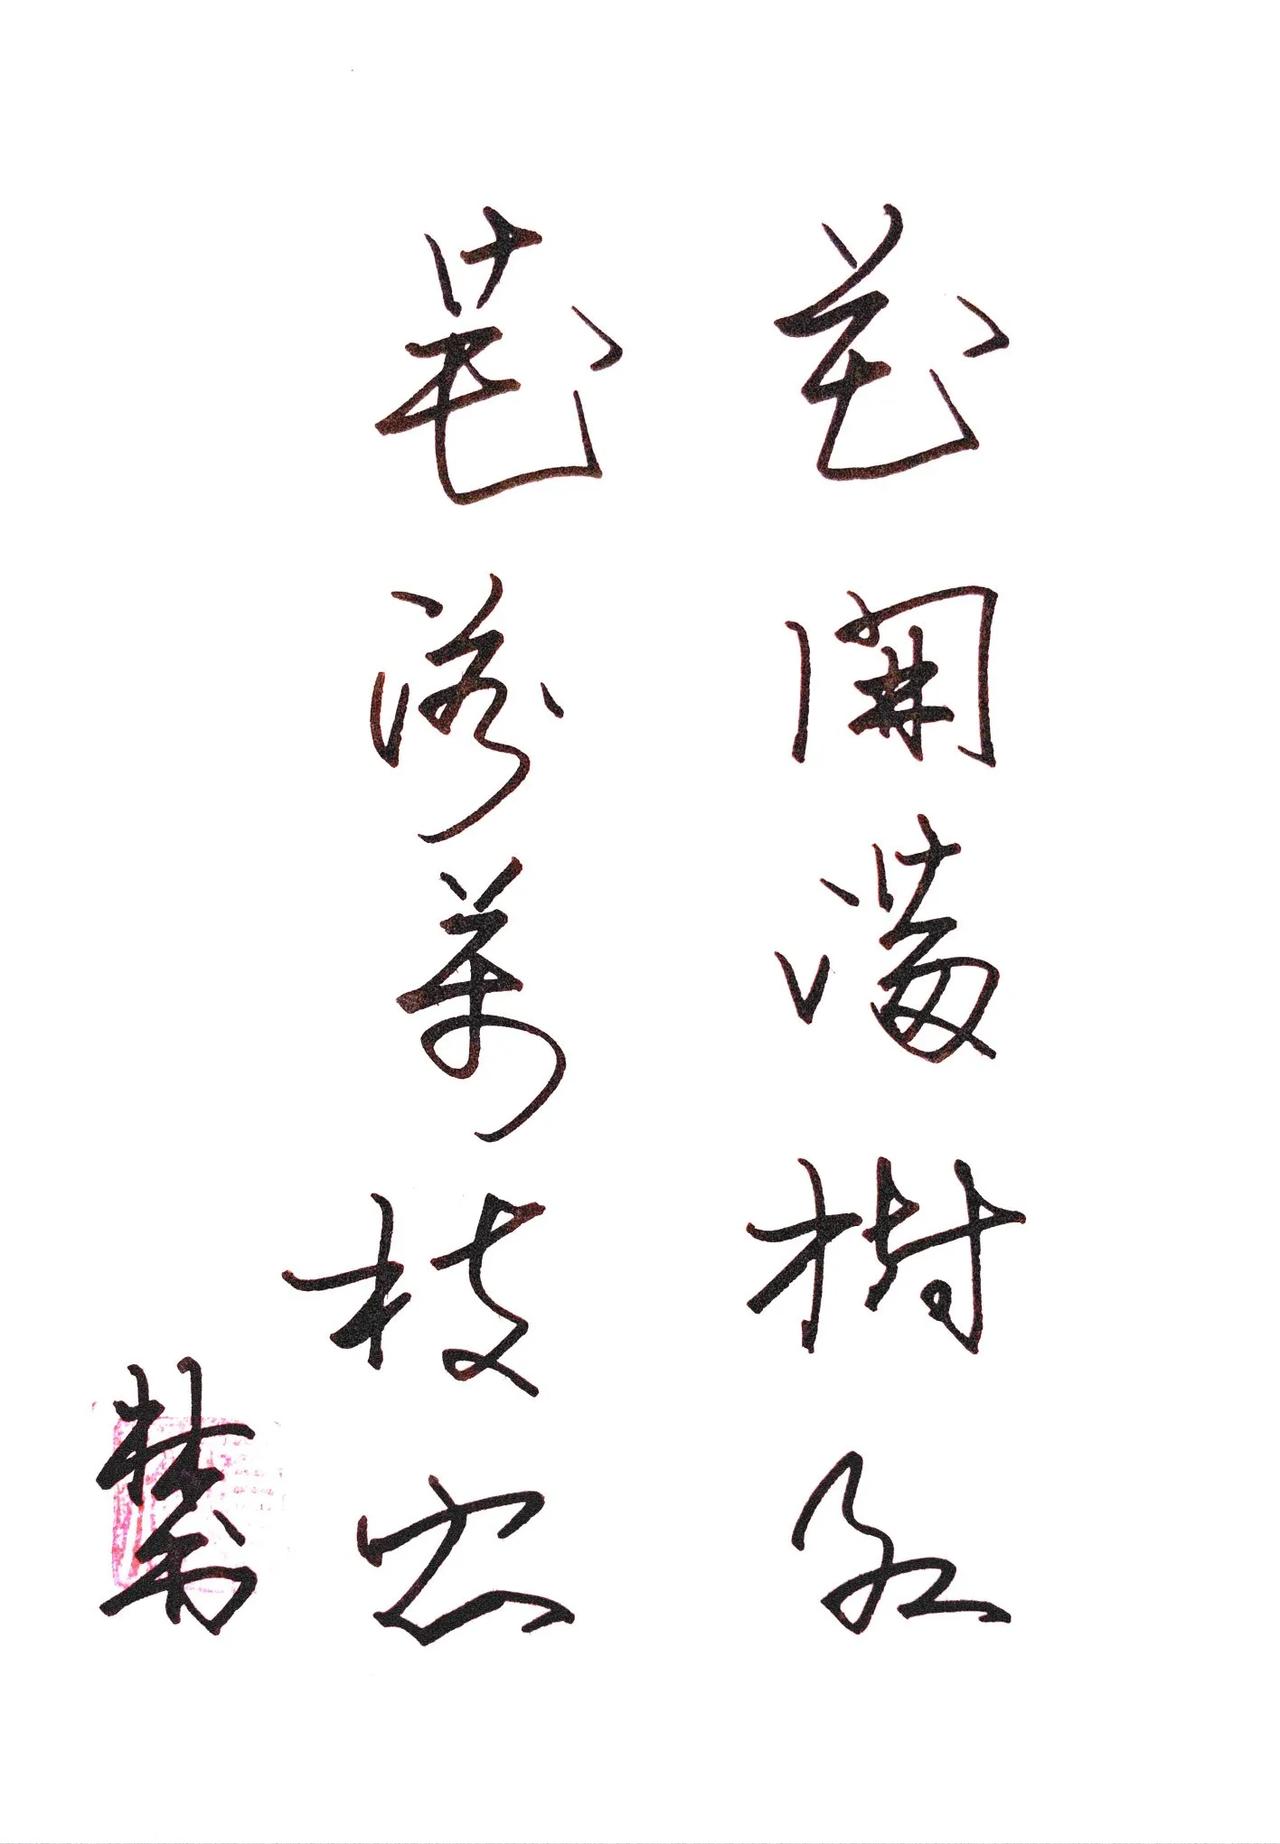 花開滿樹紅
花落萬枝空